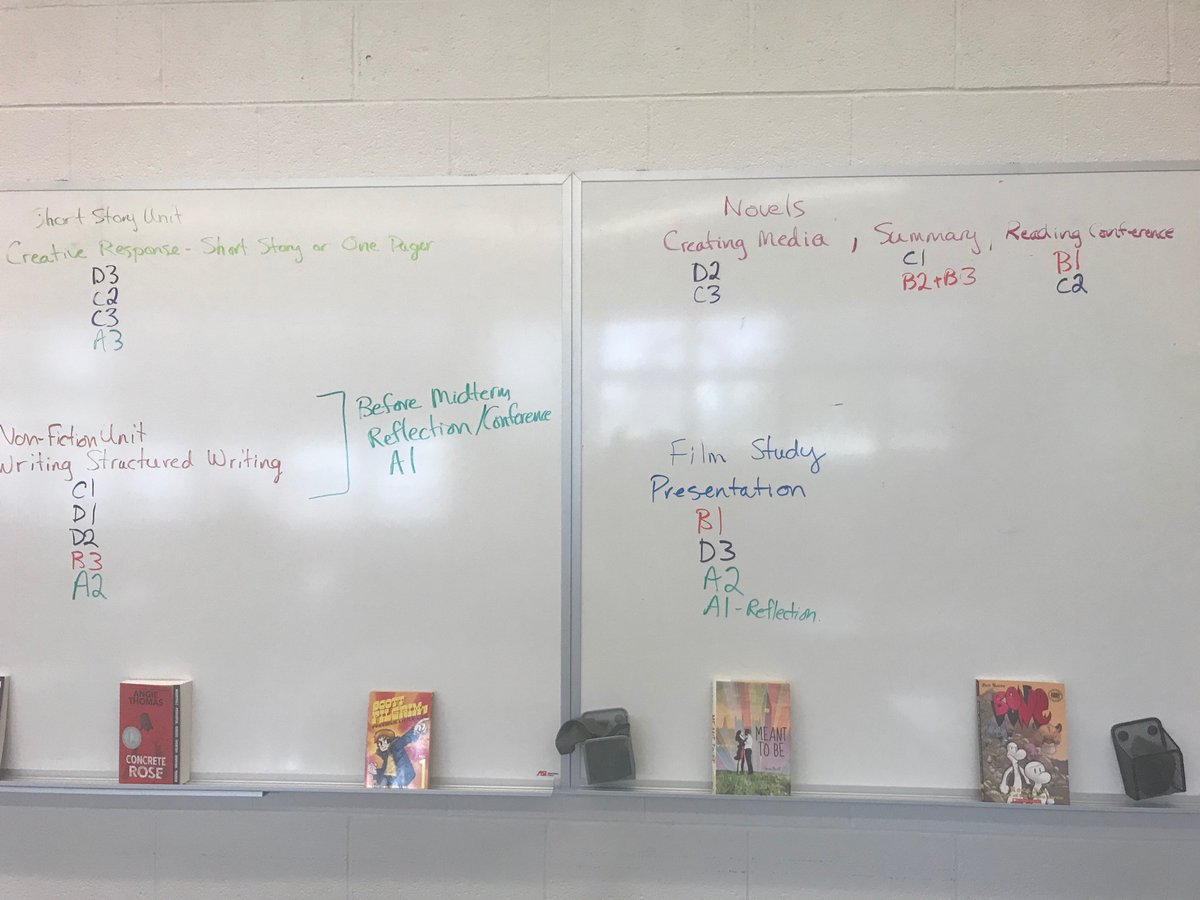 Short Story Unit
Creative Response - Short Story or One Pager
D3
C2
C3
A3
Non-Fiction Unit
Writing Structured Writing
C1
D1
D2
B3
A2
Before Midterm
Reflection/Conference
A1
Novels
Creating Media, Summary, Reading Conference
D2
C3
C1
B2+B3
B1
C2
Film Study
Presentation
B1
D3
A2
A1-Reflection.
ANGIE
THOMAS
CONCRETE
ROSE
SCOTT
PILGRIM
1
MEANT
TO BE
BONE